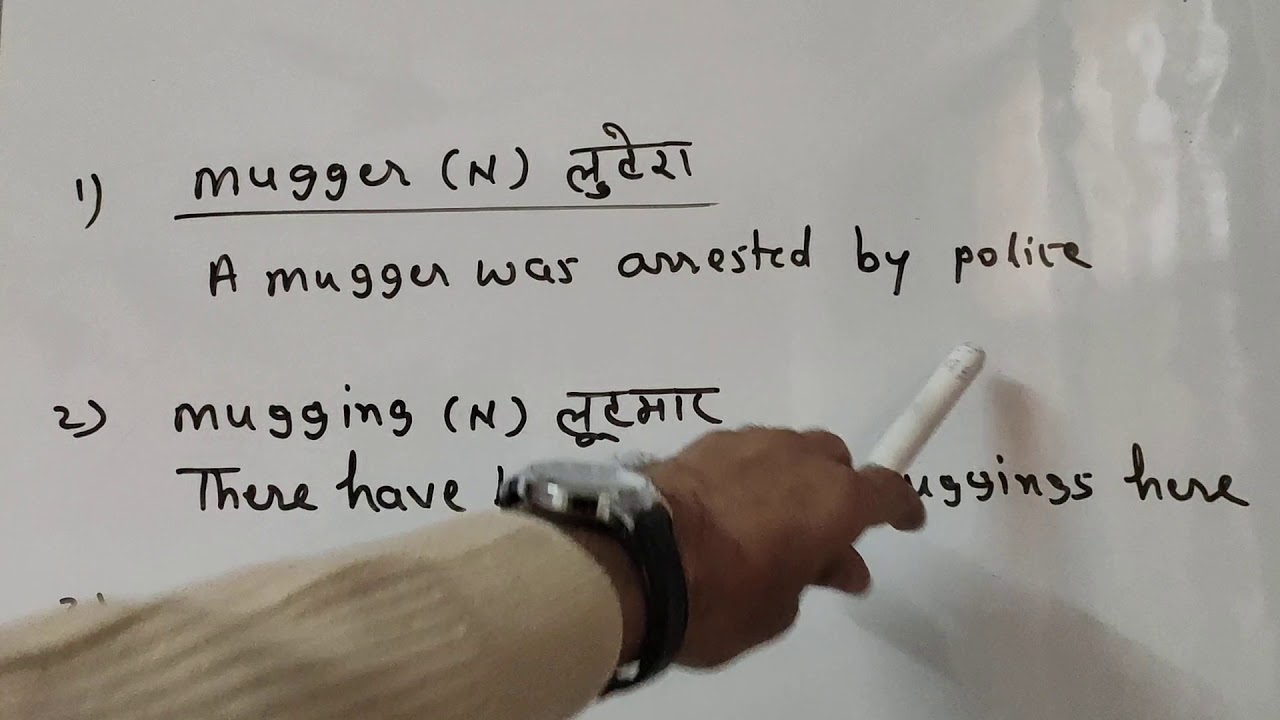 1) mugger (N) लुटेरा
A mugger was arrested by police
2) mugging (N) लूटमार
There have uggings here